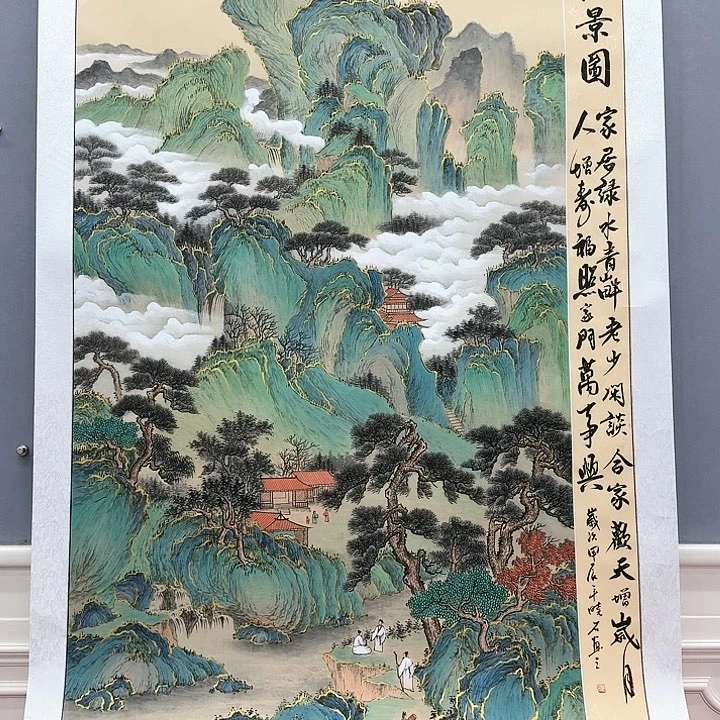 景圖
家居綠水青山畔老少閑談合家歡天增歲月
人增壽福照家門萬事興
歲次甲辰